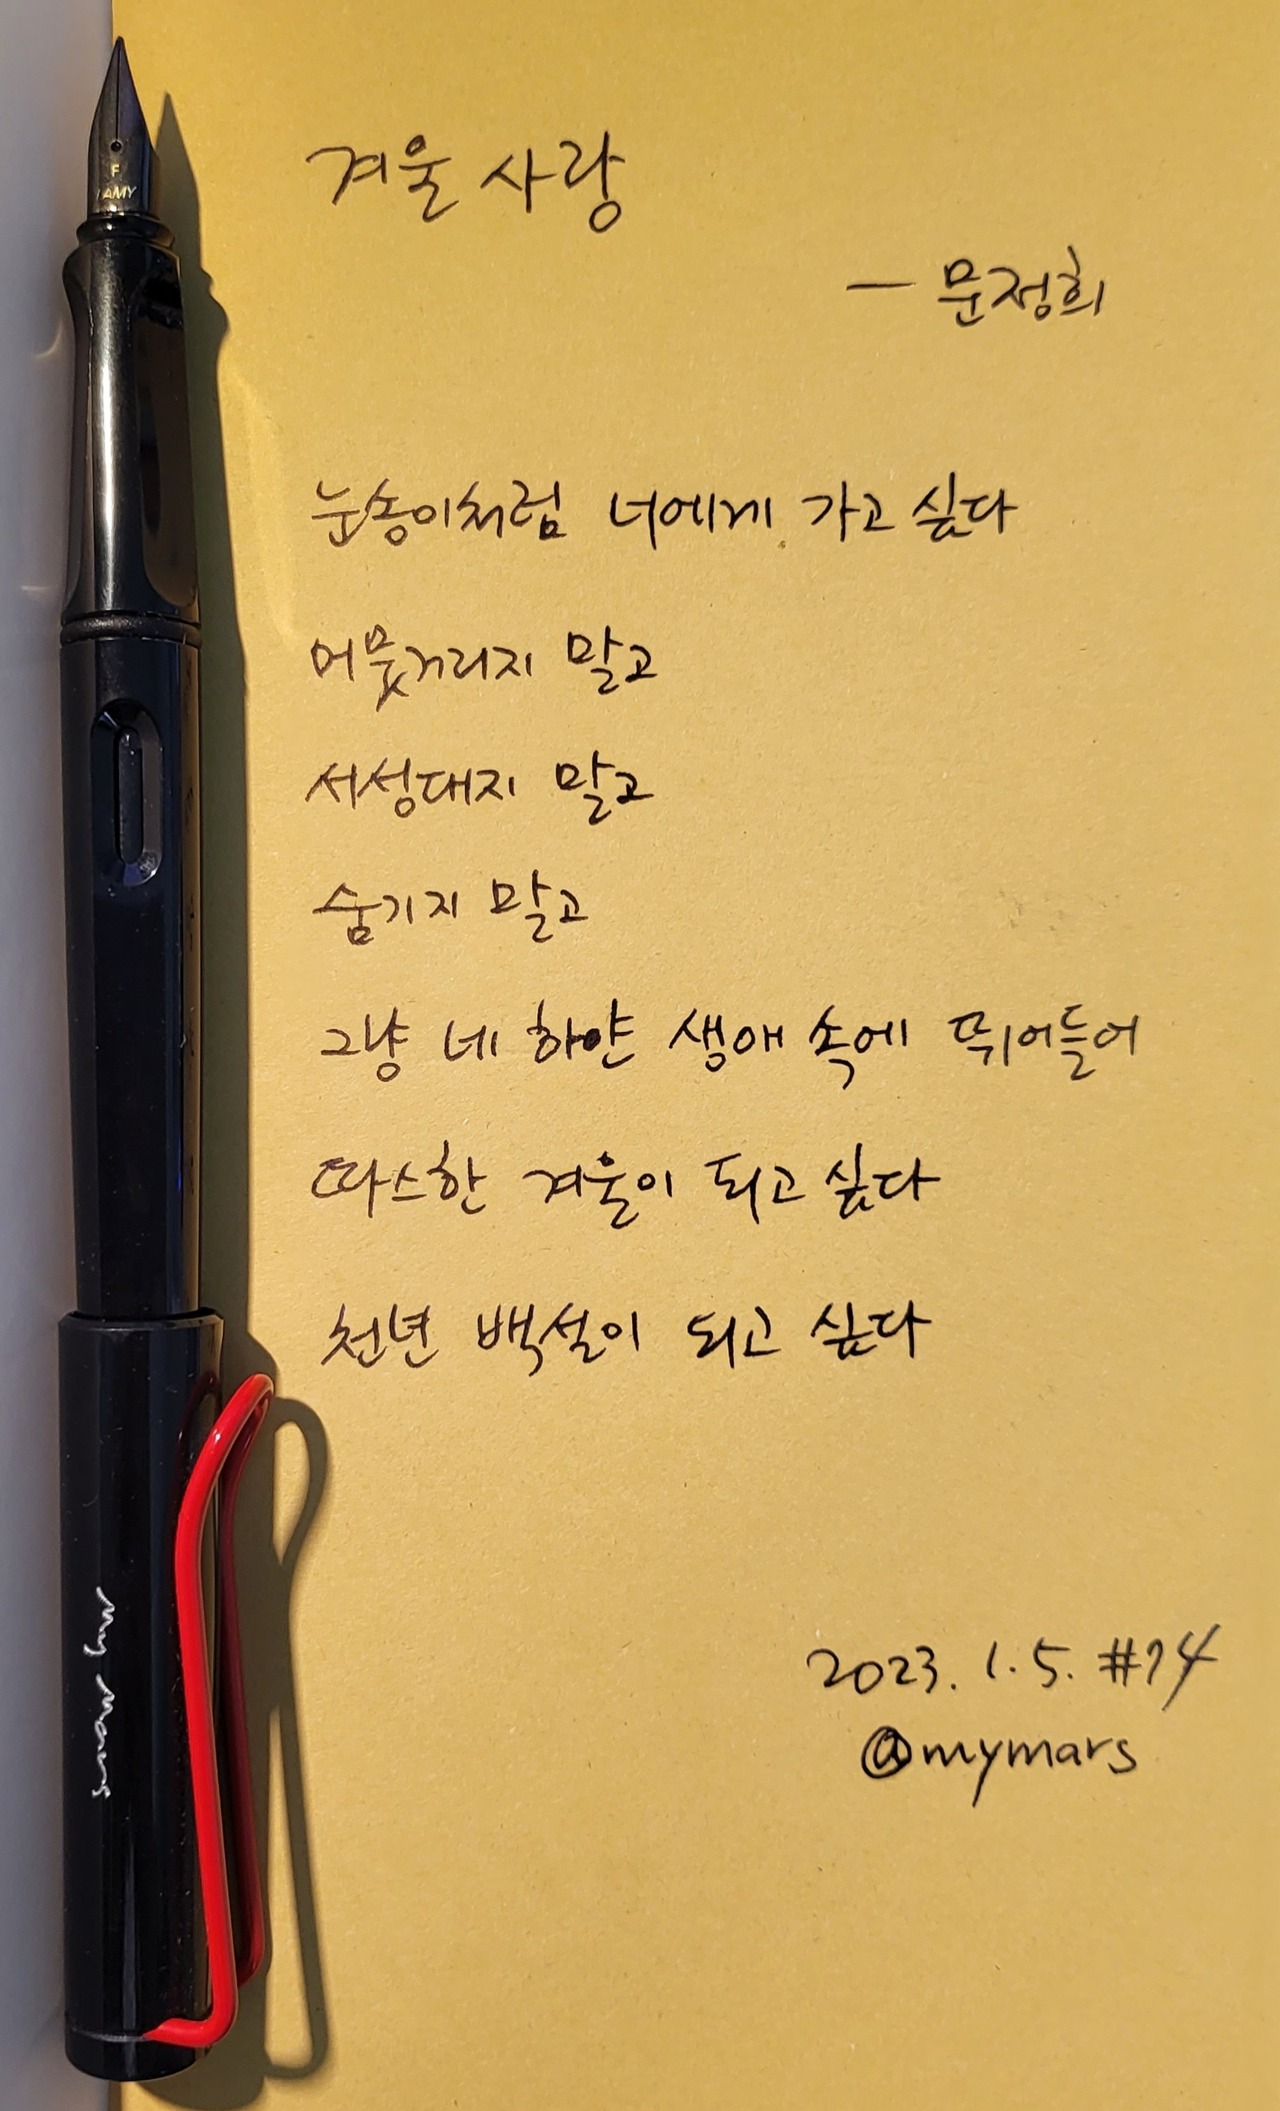 F
LAMY
my mars
겨울 사랑
— 문정희
눈송이처럼 너에게 가고 싶다
머뭇거리지 말고
서성대지 말고
숨기지 말고
그냥 네 하얀 생애 속에 뛰어들어
따스한 겨울이 되고 싶다
천년 백설이 되고 싶다
2023. 1. 5. #74
@mymars